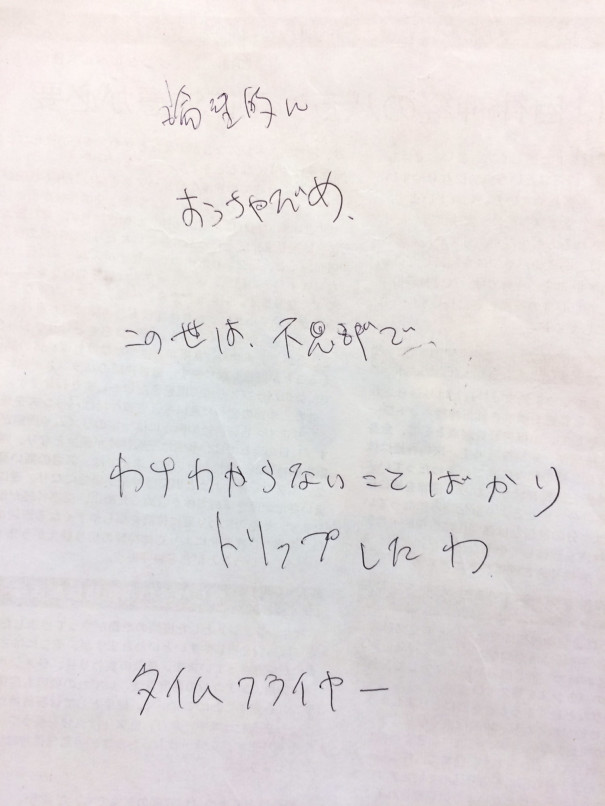 論理的に
おっちゃでめ、
この世は、不思議で、
わけわからないことばかり
トリップしたわ
タイムフライヤー